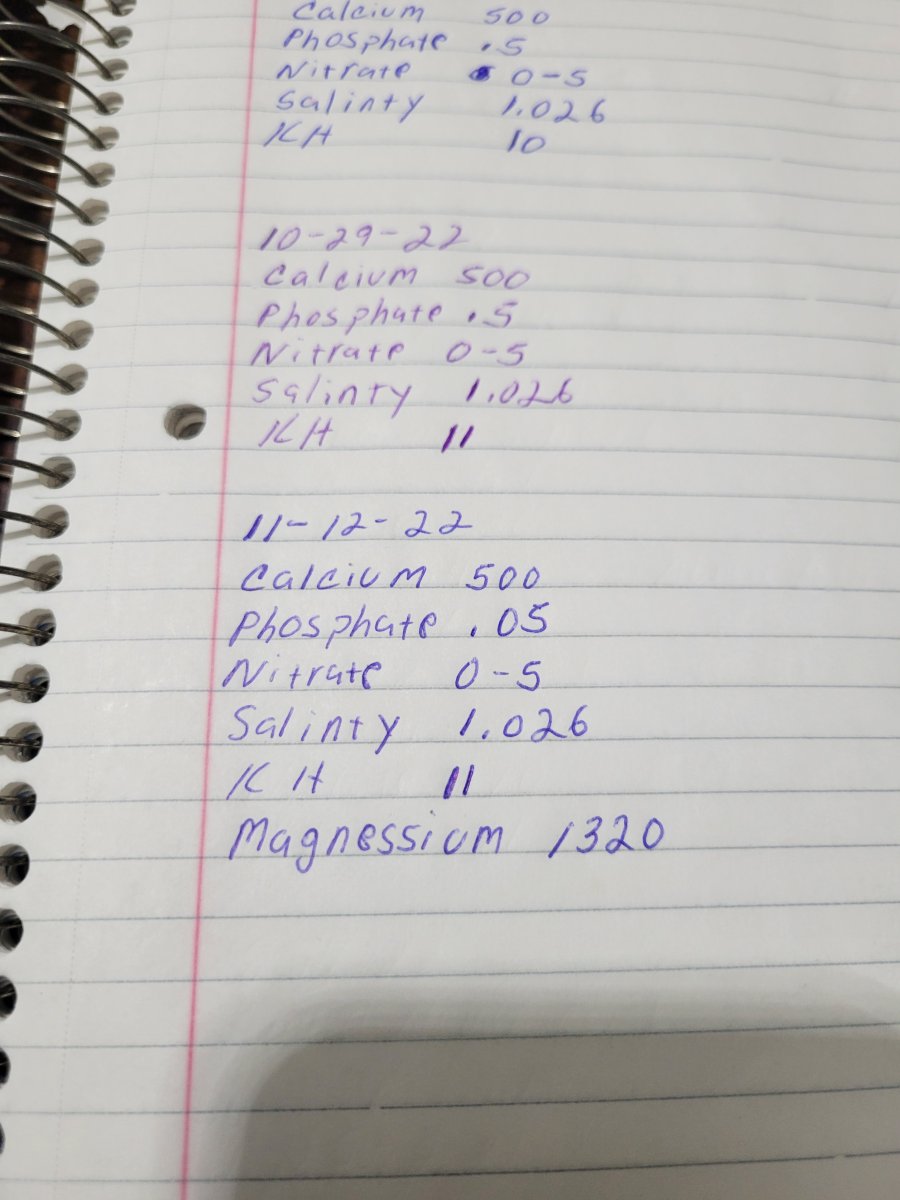 Calcium 500
Phosphate .5
Nitrate 0-5
Salinty 1.026
KH 10
10-29-22
Calcium 500
Phosphate .5
Nitrate 0-5
Salinty 1.026
KH 11
11-12-22
Calcium 500
Phosphate .05
Nitrate 0-5
Salinty 1.026
KH 11
Magnessium 1320